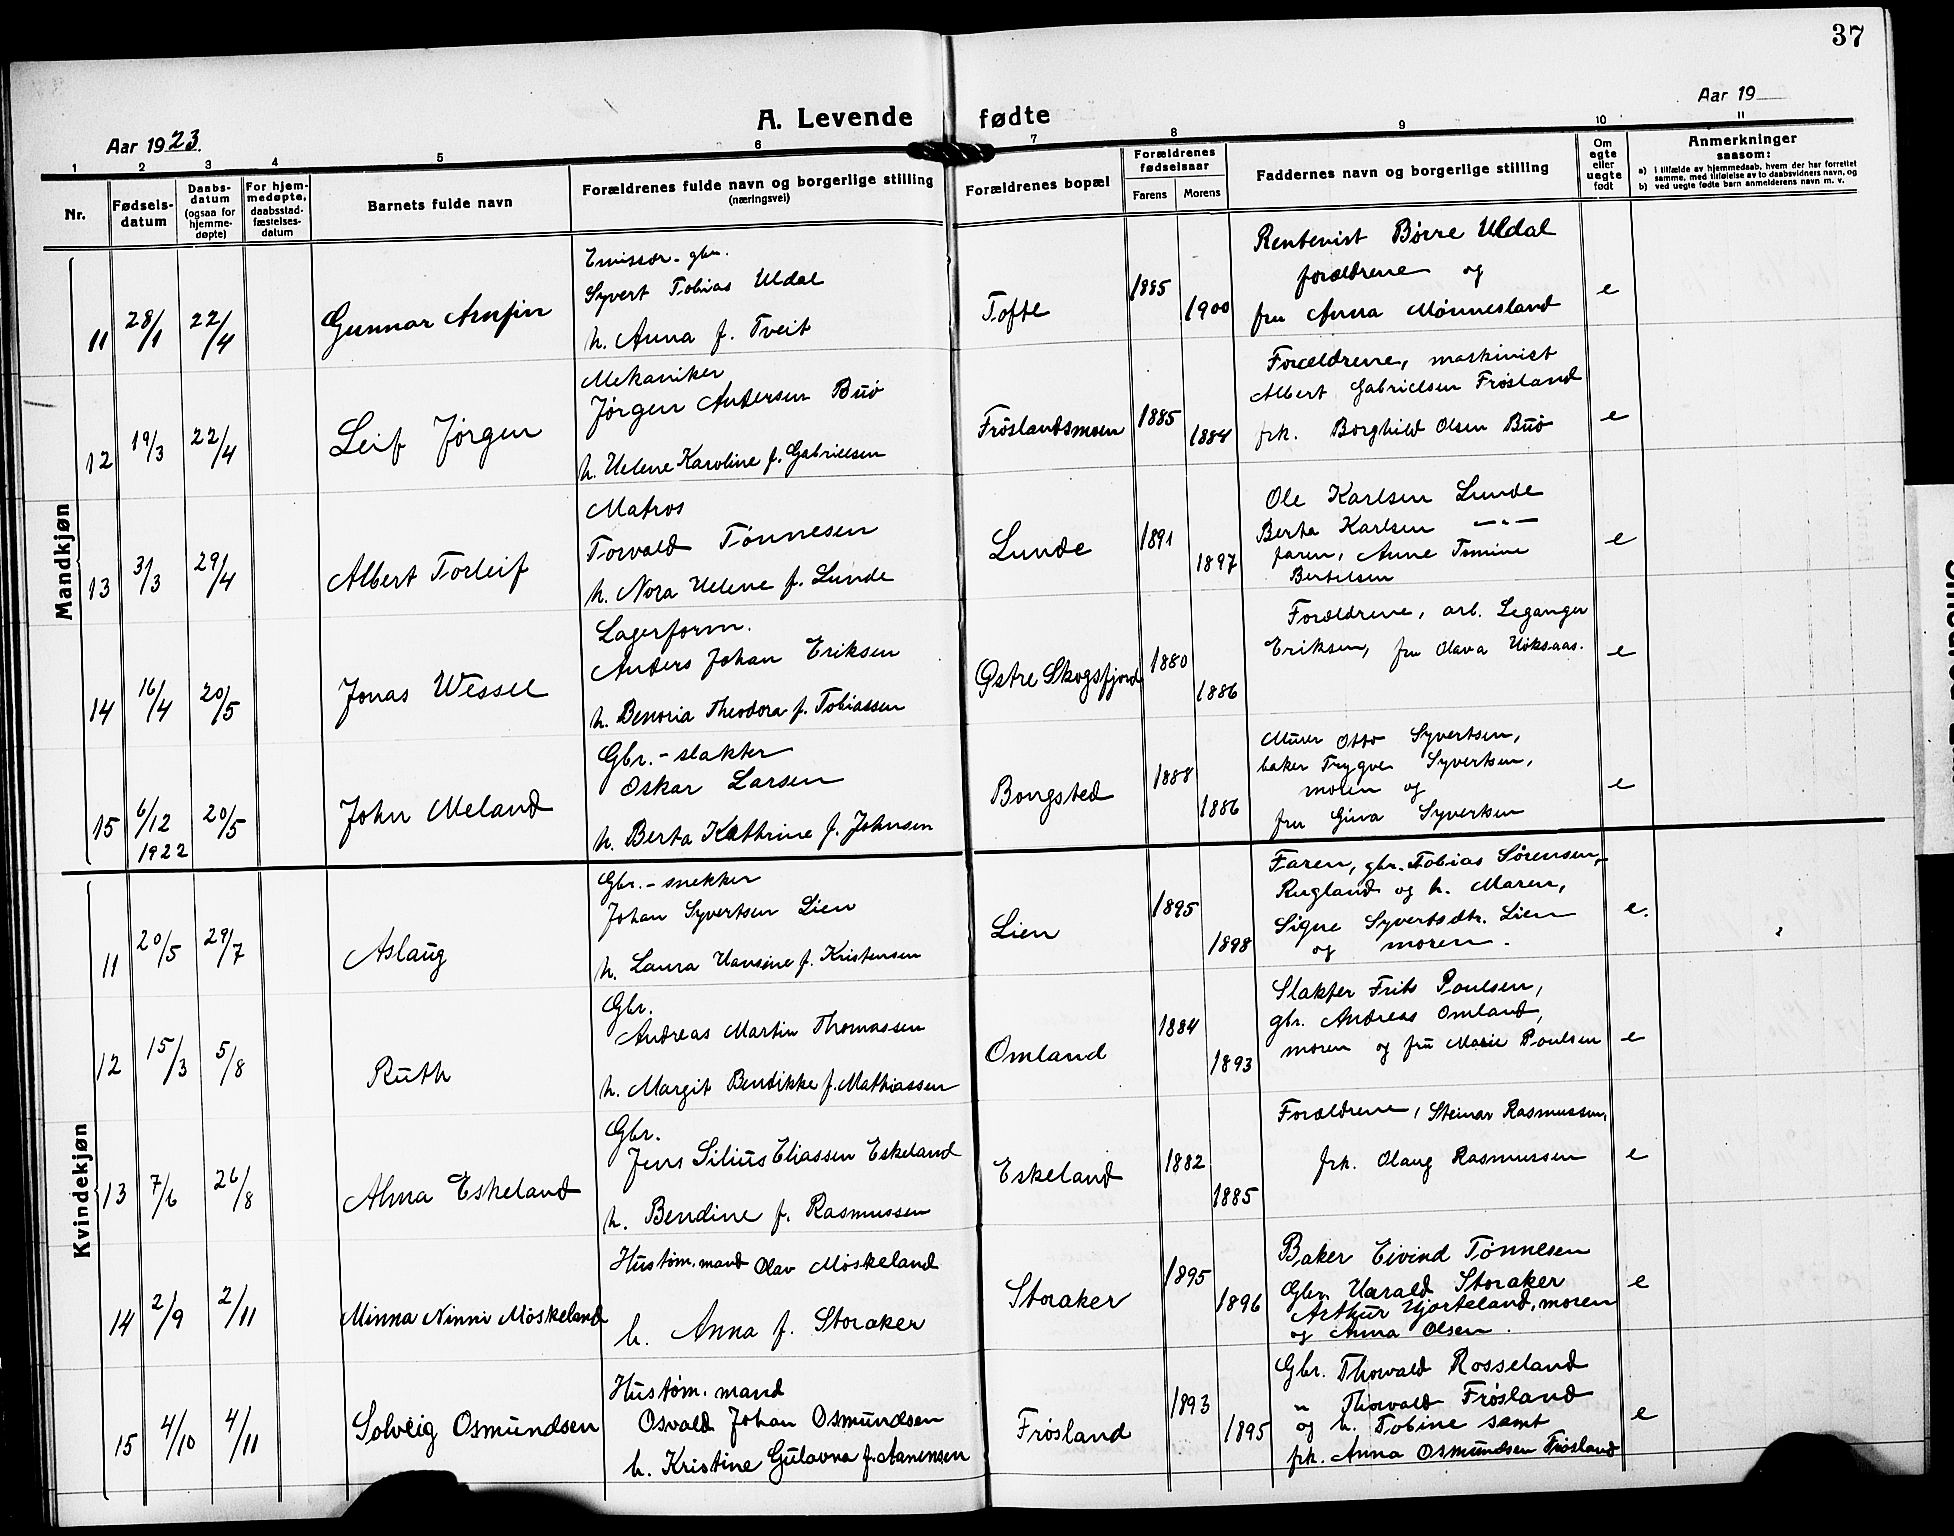 37
A. Levende fødte
Aar 1923.
Aar 19
1 2 3 4 5 6 7 8 9 10 11
Nr.
Fødsels-datum
Daabs-datum (ogsaa for hjemme-døpte)
For hjem-medøpte, daabsstad-fæstelses-datum
Barnets fulde navn
Forældrenes fulde navn og borgerlige stilling
(næringsvei)
Forældrenes bopæl
Forældrenes fødselsaar
Farens Morens
Faddernes navn og borgerlige stilling
Om egte eller uegte født
Anmerkninger
saasom:
a) i tilfælde av hjemmedaab, hvem der har forrettet
samme, med tilføielse av to daabsvidners navn, og
b) ved uegte fødte barn anmelderens navn m. v.
Mandkjøn
11 28/1 22/4 Gunnar Arnfin
Emissær - gbr.
Syvert Tobias Uldal
h. Anna f. Tveit
Tofte 1885 1900
Rentenist Børre Uldal
forældrene og
fru Anna Mønnesland
e
12 19/3 22/4 Leif Jørgen
Mekaniker
Jørgen Andersen Buø
h. Helene Karoline f. Gabrielsen
Frøslandsmoen 1885 1884
Forældrene, maskinist
Albert Gabrielsen Frøsland
frk. Borghild Olsen Buø
e
13 3/3 29/4 Albert Torleif
Matros
Torvald Tønnesen
h. Nora Helene f. Lunde
Lunde 1891 1897
Ole Karlsen Lunde
Berta Karlsen —"—
faren, Anne Tomine
Bertilsen
e
14 16/4 20/5 Jonas Wessel
Lagerform.
Anders Johan Eriksen
h. Benoria Theodora f. Tobiassen
Østre Skogsfjord 1880 1886
Forældrene, arb. Leganger
Eriksen, fru Olava Høksaas.
e
15 6/12 1922 20/5 John Meland
Gbr. - slakter
Oskar Larsen
h. Berta Kathrine f. Johnsen
Bongsted 1888 1886
Murer Otto Syvertsen,
baker Trygve Syvertsen,
moren og
fru Gina Syvertsen
e
Kvindekjøn
11 20/5 29/7 Aslaug
Gbr. - snekker
Johan Syvertsen Lien
h. Laura Hansine f. Kristensen
Lien 1895 1898
Faren, gbr. Tobias Sørensen,
Rugland og h. Maren,
Signe Syvertsdtr. Lien
og moren.
e.
12 15/3 5/8 Ruth
Gbr.
Andreas Martin Thomassen
h. Margit Bendikke f. Mathiassen
Omland 1884 1893
Slakter Frits Poulsen,
gbr. Andreas Omland,
moren og fru Marie Poulsen
e
13 7/6 26/8 Alma Eskeland
Gbr.
Jens Silius Eliassen Eskeland
h. Bendine f. Rasmussen
Eskeland 1882 1885
Forældrene, Steinar Rasmussen,
frk. Olaug Rasmussen
e
14 2/9 2/11 Minna Ninni Møskeland
Hustøm.mand Olav Møskeland
h. Anna f. Storaker
Storaker 1895 1896
Baker Eivind Tønnesen
Gbr. Harald Storaker
Arthur Hjorteland, moren
og Anna Olsen.
e
15 4/10 4/11 Solveig Osmundsen
Hustøm. mand
Osvald Johan Osmundsen
h. Kristine Gulavna f. Aanensen
Frøsland 1893 1895
Gbr. Thorvald Rosseland
" Thorvald Frøsland
og h. Tobine samt
frk. Anna Osmundsen Frøsland
e